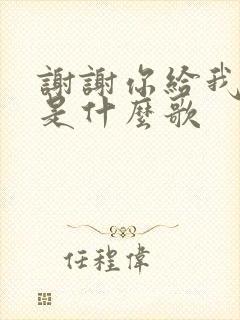 謝謝你給我
是什麼歌
任程偉